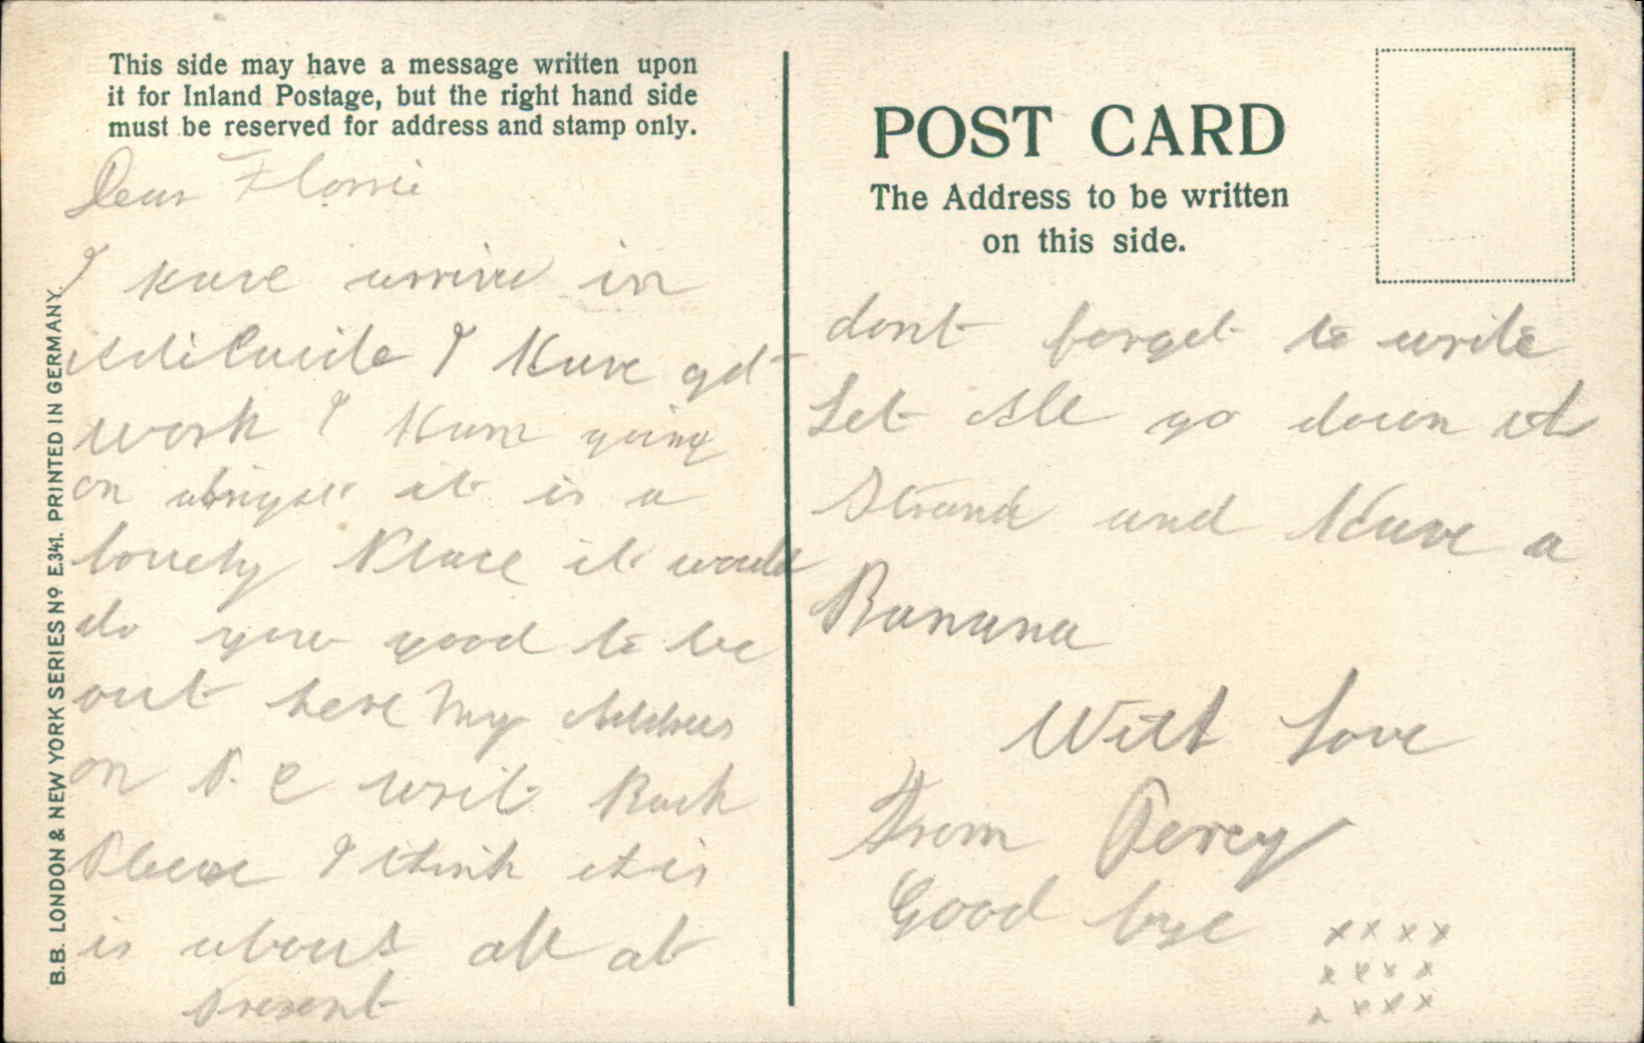 This side may have a message written upon
it for Inland Postage, but the right hand side
must be reserved for address and stamp only.
Dear Florrie
I have arrive in
I have got
work I Ham going
on it is a
lovely Place it would
do you good to be
out here My Address
on P. C writ Back
Please I think it is
is about all at
Present
B.B. LONDON & NEW YORK SERIES Nº E.341. PRINTED IN GERMANY.
POST CARD
The Address to be written
on this side.
dont forget to write
Let go down
Strand and Have a
Banana
With Love
From Percy
Good bye
x x x x
x x x x
x x x x